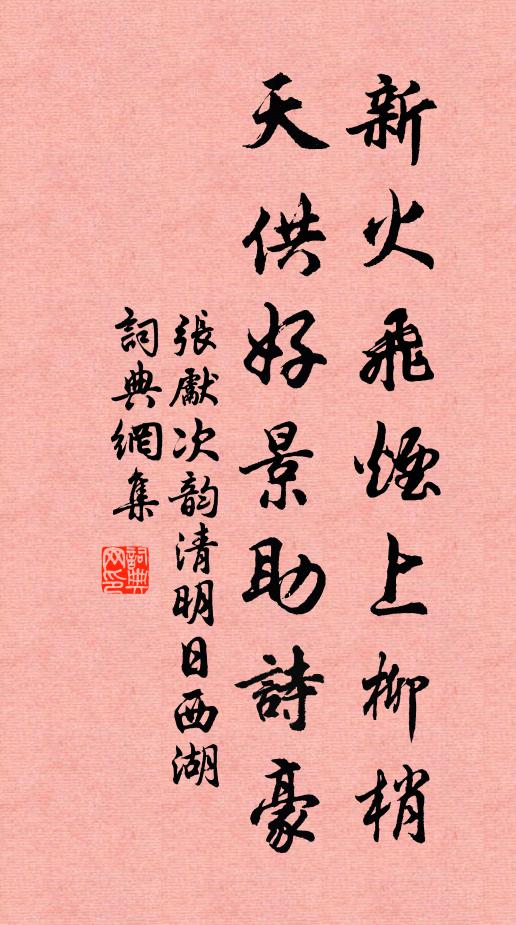 新火飛煙上柳梢
天供好景助詩豪
張獻次韵清明日西湖
詞典網集
詞典网印